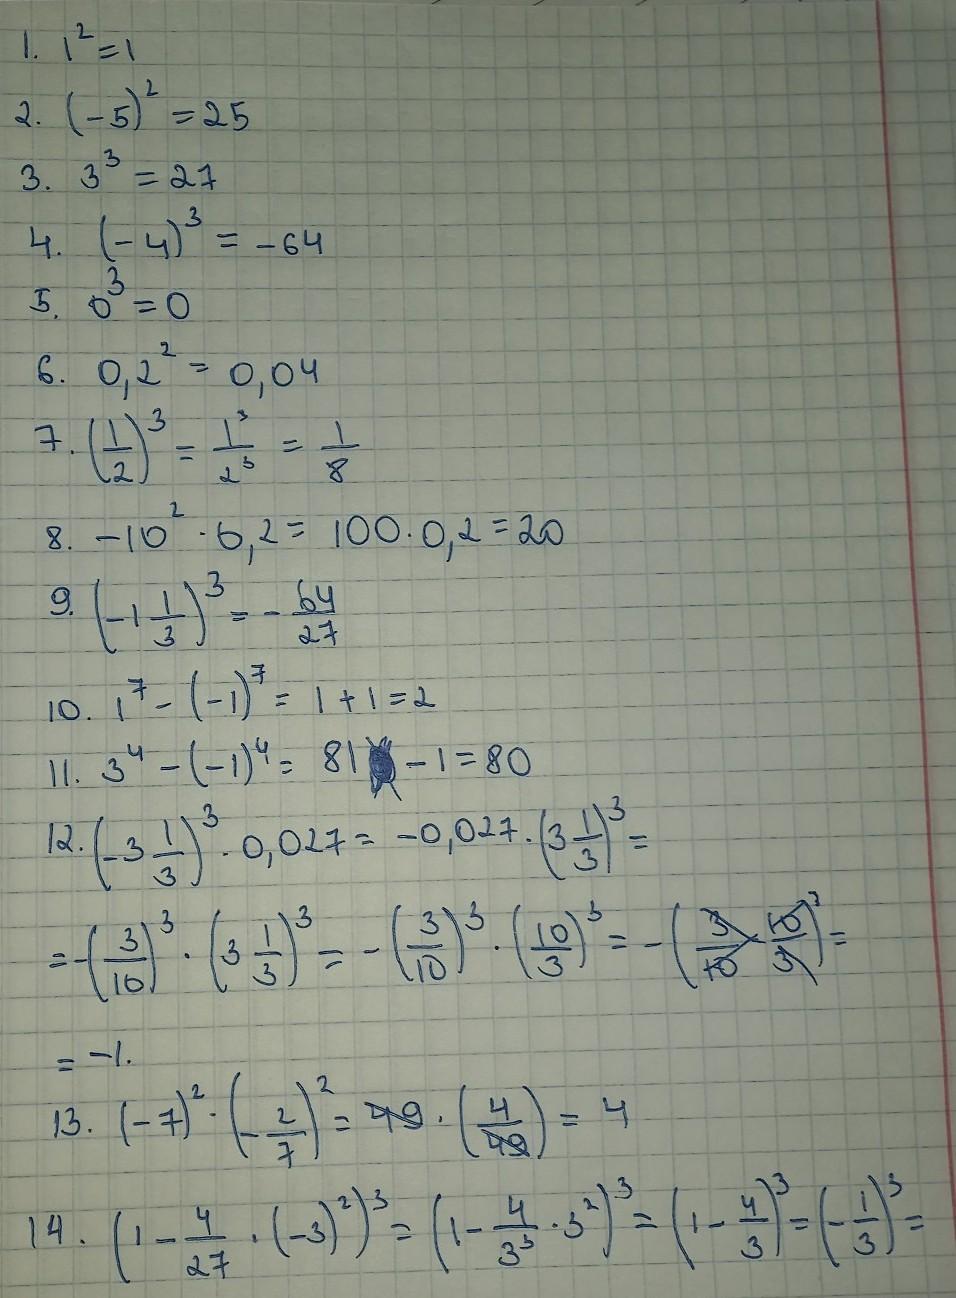 1. 1² = 1
2. (-5)² = 25
3. 3³ = 27
4. (-4)³ = -64
5. 0³ = 0
6. 0,2² = 0,04
7. (1/2)³ = 1³/2³ = 1/8
8. -10² · 0,2 = 100 · 0,2 = 20
9. (-1 1/3)³ = - 64/27
10. 1⁷ - (-1)⁷ = 1 + 1 = 2
11. 3⁴ - (-1)⁴ = 81 - 1 = 80
12. (-3 1/3)³ · 0,027 = -0,027 · (3 1/3)³ =
= -(3/10)³ · (3 1/3)³ = -(3/10)³ · (10/3)³ = -(3/10 · 10/3)³ =
= -1.
13. (-7)² · (-2/7)² = 49 · (4/49) = 4
14. (1 - 4/27 · (-3)²)³ = (1 - 4/3³ · 3²)³ = (1 - 4/3)³ = (-1/3)³ =